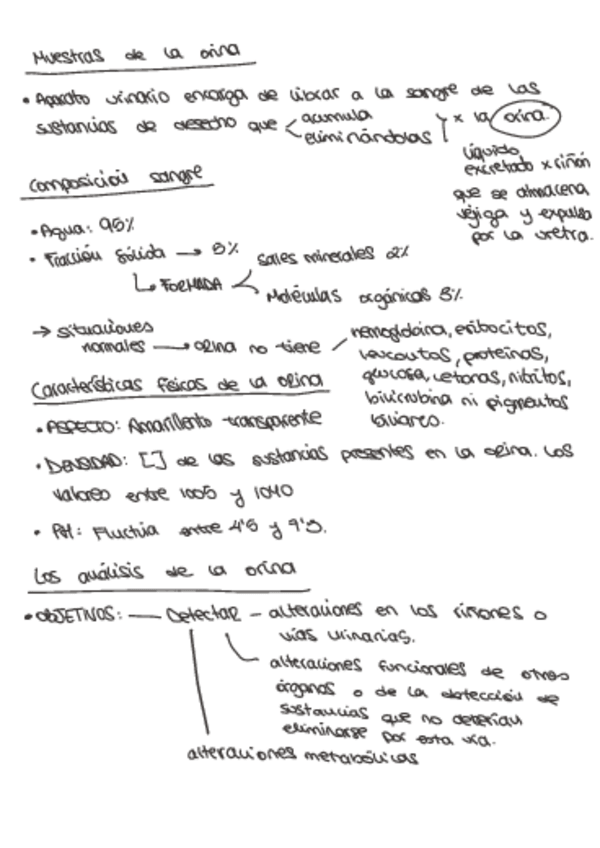 Muestras de la orina
• Aparato urinario encarga de librar a la sangre de las
sustancias de desecho que < acumula
eliminándolas
x la orina.
líquido
excretado x riñón
que se almacena
vejiga y expulsa
por la uretra.
Composición sangre
• Agua: 95%
• Fracción sólida → 5%
sales minerales 2%
↳ FORMADA <
Moléculas orgánicas 3%.
→ situaciones
normales → orina no tiene
hemoglobina, eritocitos,
leucocitos, proteínas,
glucosa, cetonas, nitritos,
bilirrubina ni pigmentos
biliares.
Características físicas de la orina
• ASPECTO: Amarillento transparente
• DENSIDAD: [] de las sustancias presentes en la orina. Los
valores entre 1005 y 1040
• PH: Fluctúa entre 4'5 y
Los análisis de la orina
• OBJETIVOS: — Detectar — alteraciones en los riñones o
vías urinarias.
alteraciones funcionales de otros
órganos o de la detección de
sustancias que no deberían
eliminarse por esta vía.
alteraciones metabólicas